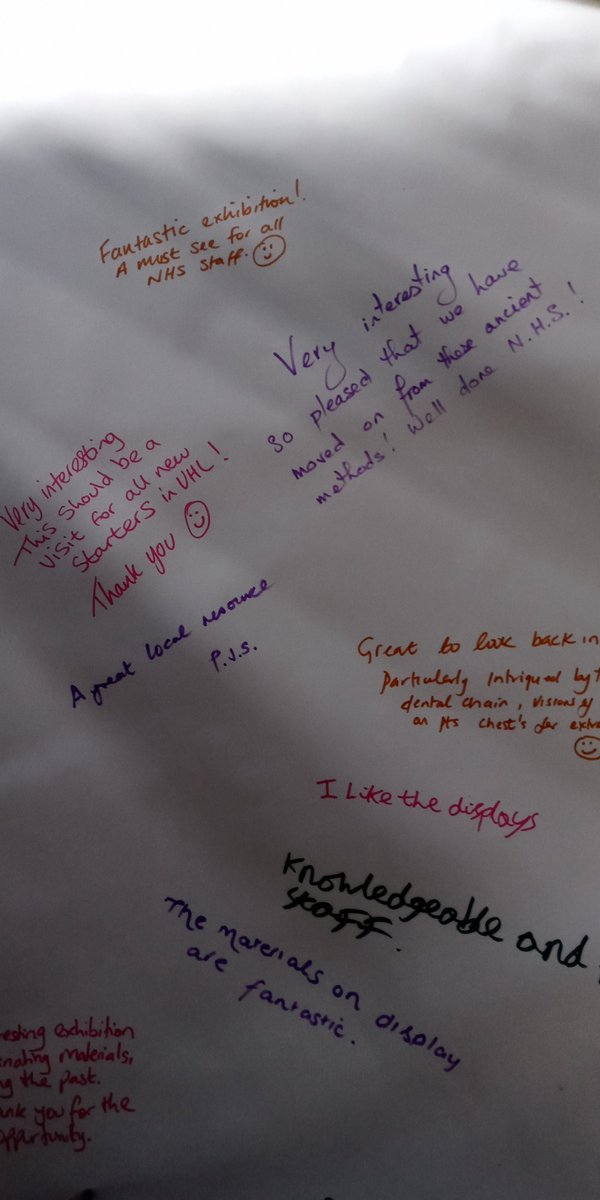 Fantastic exhibition!
A must see for all
NHS staff.
Very interesting
so pleased that we have
moved on from these ancient
methods! Well done N.H.S.!
Very interesting
This should be a
visit for all new
starters in UHL!
Thank you
A great local resource
P.J.S.
Great to look back in
Particularly Intriqued by
dental chain, visions of
on pts chest's for
I Like the displays
Knowledgeable and
staff.
The materials on display
are fantastic.
esting exhibition
inating materials,
ng the past.
ank you for the
opportunity.